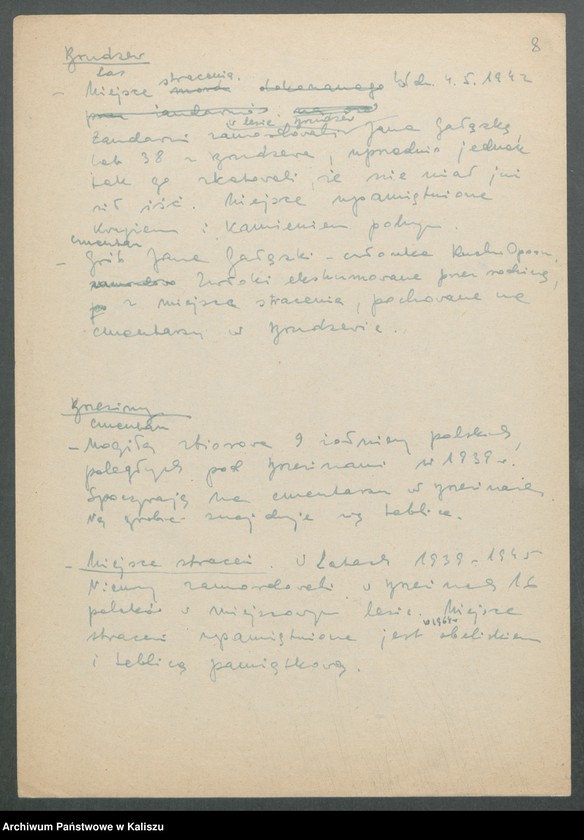 8
Brudzew
las
- Miejsce stracenia. dokonanego W dn. 4.5.1942
żandarmi w lesie Brudzew zamordowali Jana Gałązkę
lat 38 z Brudzewa, uprzednio jednak
tak go skatowali, że nie miał już
sił iść. Miejsce upamiętnione
krzyżem i kamieniem polnym.
cmentarz
- Grób Jana Gałązki - członka Ruchu Oporu,
Zwłoki ekshumowane przez rodzinę,
z miejsca stracenia, pochowane na
cmentarzu w Brudzewie.
Brzeziny
cmentarz
- Mogiła zbiorowa 9 żołnierzy polskich,
poległych pod Brzezinami w 1939 r.
Spoczywają na cmentarzu w Brzezinach.
Na grobie znajduje się tablica.
- Miejsce straceń. W latach 1939-1945
Niemcy zamordowali w Brzezinach 16
polaków w miejscowym lesie. Miejsce
straceń upamiętnione jest obeliskiem
i tablicą pamiątkową.
Archiwum Państwowe w Kaliszu